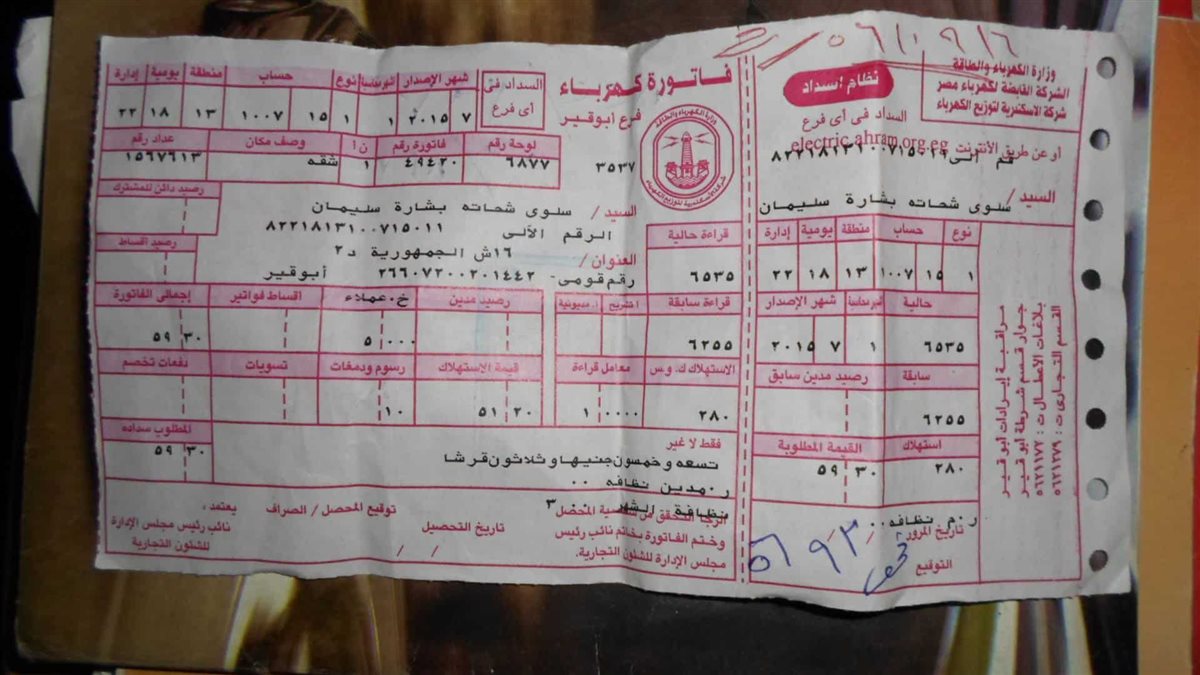 وزارة الكهرباء والطاقة
الشركة القابضة لكهرباء مصر
شركة الاسكندرية لتوزيع الكهرباء
نظام اسداد
السداد فى أى فرع
أو عن طريق الأنترنت electric.ahram.org.eg
السيد/ سلوى شحاته بشارة سليمان
نوع حساب منطقة يومية إدارة
١ ١٥ ١٠٠٧ ١٣ ١٨ ٢٢
حالية شهر الإصدار
٦٥٣٥ ١ ٧ ٢٠١٥
سابقة رصيد مدين سابق
٦٢٥٥
استهلاك القيمة المطلوبة
٢٨٠ ٣٠ ٥٩
ر.م نظافه ..
تاريخ المرور
التوقيع
مراقبة إيرادات أبو قير
جوار قسم شرطة ابو قير
بلاغات الاعطال ت : ٥٦٢١١٧٧
القسم التجارى ت : ٥٦٢١٢٧٩
فاتورة كهرباء
فرع أبوقير
٣٥٣٧
السداد فى أى فرع
شهر الإصدار نوع حساب منطقة يومية إدارة
٧ ٢٠١٥ ١ ١ ١٥ ١٠٠٧ ١٣ ١٨ ٢٢
لوحة رقم فاتورة رقم ن أ وصف مكان عداد رقم
٦٨٧٧ ٤٩٤٢٠ ١ شقه ١٥٦٧٦١٣
السيد/ سلوى شحاته بشارة سليمان
رصيد دائن للمشترك
الرقم الآلى ٨٢٢١٨١٣١٠٠٧١٥٠١١
العنوان/ ١٦ش الجمهورية د٢
رقم قومى ٢٦٦٠٧٢٠٠٢٠١٤٤٢ أبوقير
رصيد اقساط
قراءة حالية
٦٥٣٥
قراءة سابقة رصيد مدين خ.عملاء اقساط فواتير إجمالى الفاتورة
٦٢٥٥ ٠٠٠ ٥ ٣٠ ٥٩
الاستهلاك ك.و.س معامل قراءة قيمة الاستهلاك رسوم ودمغات تسويات دفعات تخصم
٢٨٠ ٠٠٠٠ ١ ٢٠ ٥١ ١٠ ٣
فقط لا غير
تسعه وخمسون جنيها و ثلاثون قرشا
المطلوب سداده
٣٠ ٥٩
ر.مدين نظافه ..
نظافة الشهر ٣
الرجا التحقق من شخصية المحصل
وختم الفاتورة بخاتم نائب رئيس
مجلس الإدارة للشئون التجارية.
توقيع المحصل / الصراف
تاريخ التحصيل / /
يعتمد ،
نائب رئيس مجلس الإدارة
للشئون التجارية